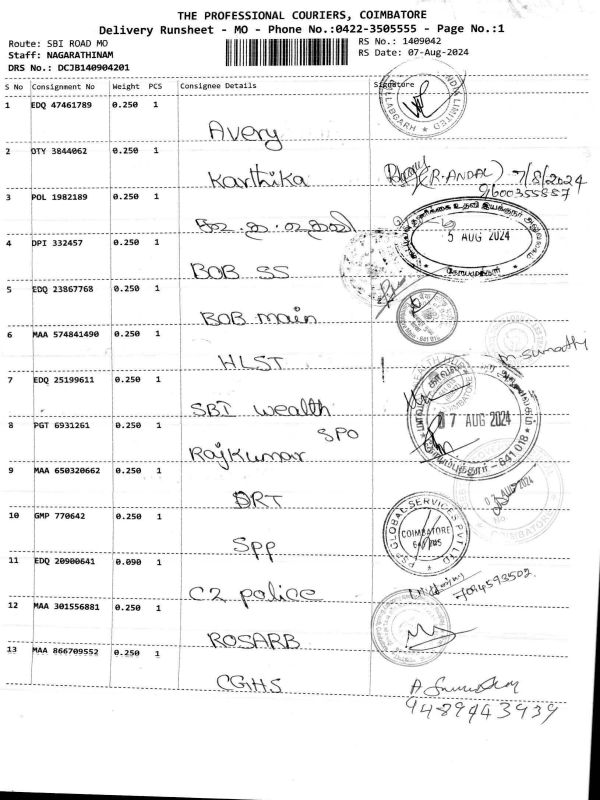 THE PROFESSIONAL COURIERS, COIMBATORE
Delivery Runsheet - MO - Phone No.:0422-3505555 - Page No.:1
Route: SBI ROAD MO
RS No.: 1409042
Staff: NAGARATHINAM
RS Date: 07-Aug-2024
DRS No.: DCJB140904201
S No Consignment No Weight PCS Consignee Details Signature
1 EDQ 47461789 0.250 1
Avery
2 OTY 3844062 0.250 1
Karthika (R.ANDAL) 7/8/2024
9600355857
3 POL 1982189 0.250 1
5 AUG 2024
4 DPI 332457 0.250 1
BOB SS
5 EDQ 23867768 0.250 1
BOB main
6 MAA 574841490 0.250 1
HLST
M. Sumathi
7 EDQ 25199611 0.250 1
SBI wealth
07 AUG 2024
8 PGT 6931261 0.250 1
SPO
Rajkumar
641 018
9 MAA 650320662 0.250 1
DRT
COIMBATORE
10 GMP 770642 0.250 1
PSP GLOBAL SERVICES PVT LTD
COIMBATORE
Spp
11 EDQ 20900641 0.090 1
C2 police
7094593502
12 MAA 301556881 0.250 1
ROSARB
13 MAA 866709552 0.250 1
CGHS
9489443939